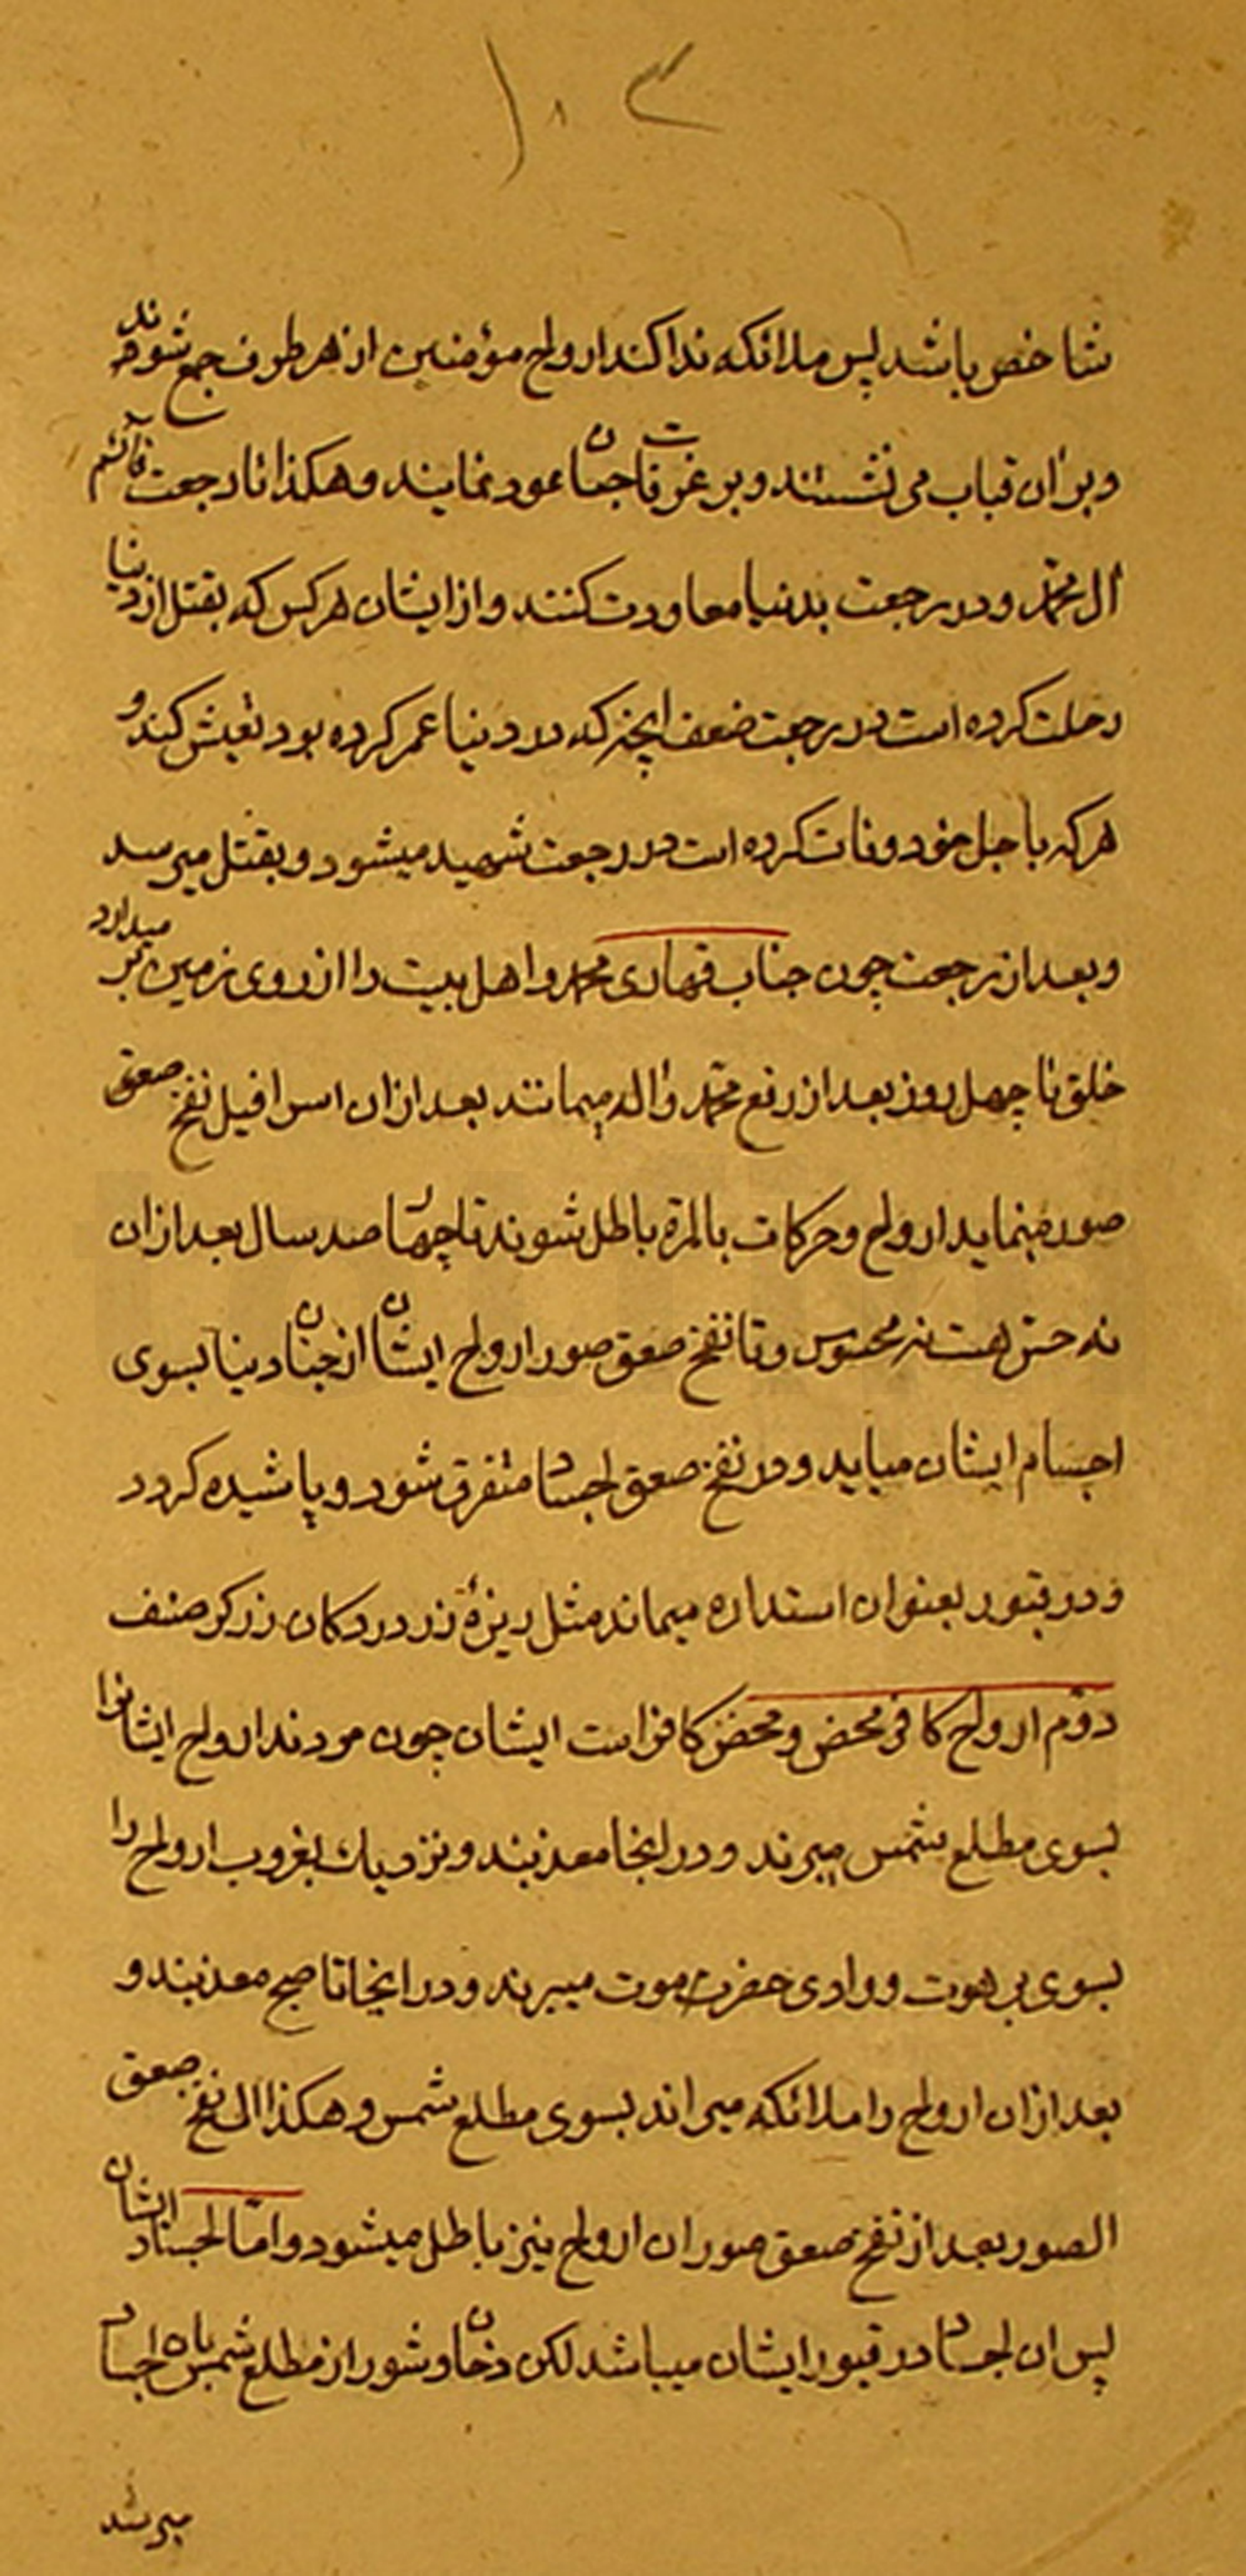 ۱۰۴
شاخص باشد پس ملائکه ندا کند ارواح مؤمنین از هر طرف جمع شوند
و بران قباب می نشستند و بر غرفات جنان عود نمایند و هکذا تا رجعت قائم
آل محمد و در رجعت بدنیا معاودت کنند و از ایشان هر کس که بقتل از دنیا
رحلت کرده است در رجعت ضعف اینچه که در دنیا عمر کرده بود تعیش کند و
هر که باجل خود وفات کرده است در رجعت شهید میشود و بقتل میرسد
و بعد از رجعت چون جناب قهاری محمد و اهل بیت را از روی زمین بر میدارد
خلق تا چهل روز بعد از رفع محمد و اله میمانند بعد از ان اسرافیل نفخ صعق
صور مینماید ارواح و حرکات بالمره باطل شوند تا چهار صد سال بعد از ان
نه حس هست نه محسوس و تا نفخ صعق صور ارواح ایشان از جنان دنیا بسوی
اجسام ایشان میاید و در نفخ صعق اجساد متفرق شود و پاشیده کردد
و در قبور بعنوان استداره میماند مثل ریزهٔ زر در دکان زرکر صنف
دوم ارواح کافر محض و محض کافر است ایشان چون مردند ارواح ایشانرا
بسوی مطلع شمس میبرند و در اینجا معذبند و نزدیك بغروب ارواح را
بسوی برهوت و وادی حضرموت میبرند و در اینجا تا صبح معذبند و
بعد از ان ارواح را ملائکه میراند بسوی مطلع شمس و هکذا الی نفخ صعق
الصور بعد از نفخ صعق صور ان ارواح نیز باطل میشود و اما اجساد ایشان
پس ان اجساد در قبور ایشان میباشد لکن دخان و شور از مطلع شمس باه اجساد
میرسد